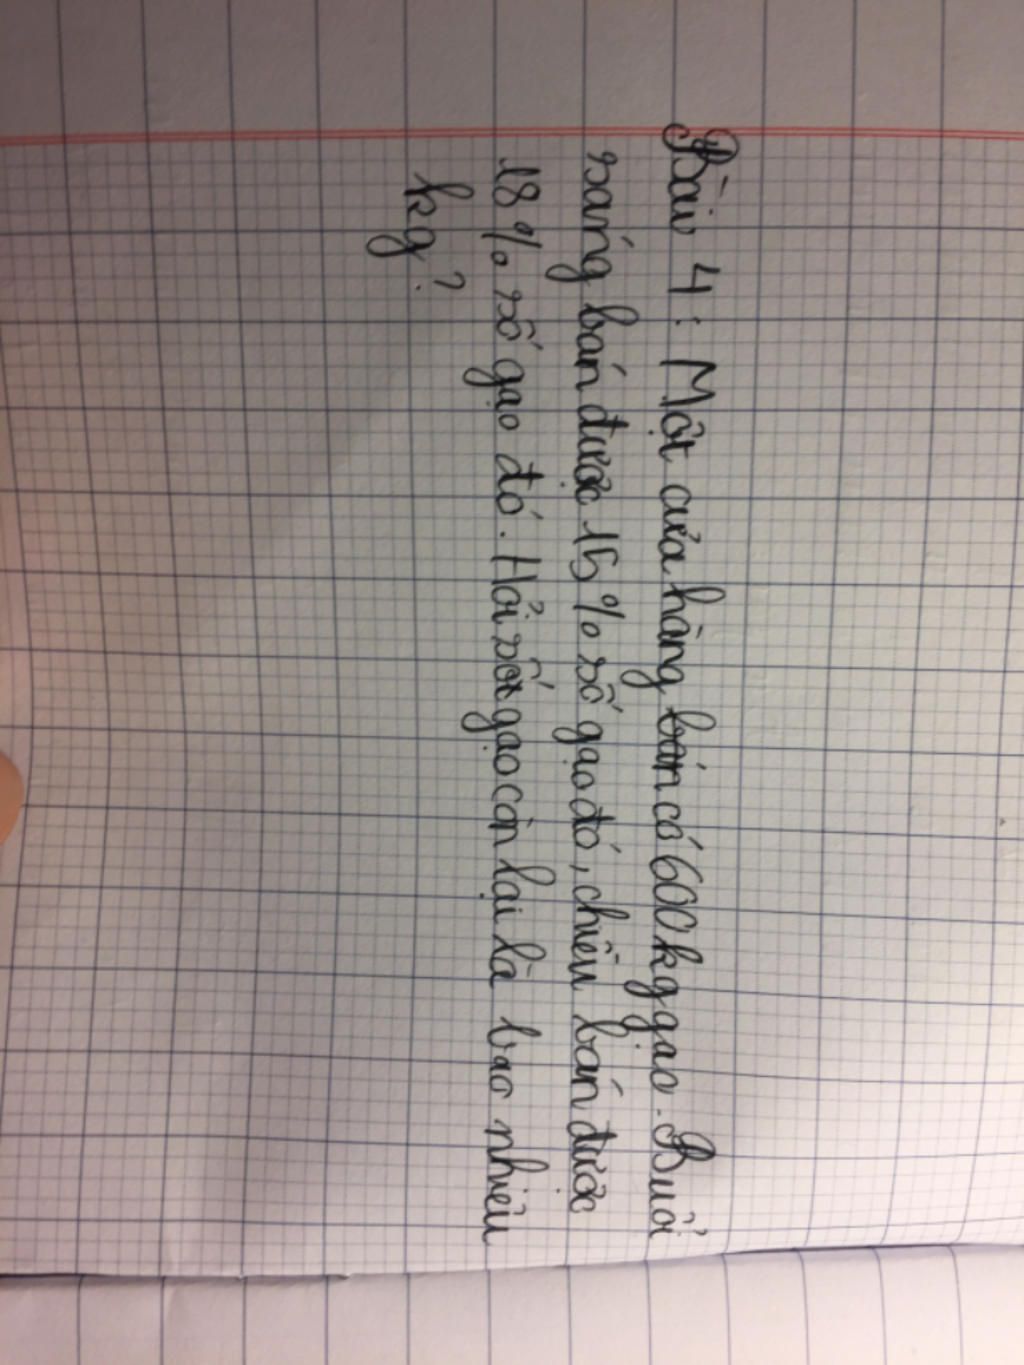 Bài 4: Một cửa hàng bán có 600kg gạo. Buổi
sáng bán được 15% số gạo đó, chiều bán được
18% số gạo đó. Hỏi số gạo còn lại là bao nhiêu
kg?